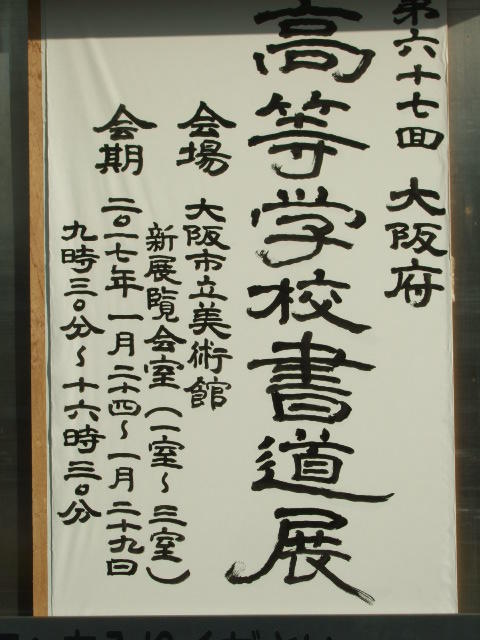 第六十七回 大阪府
高等学校書道展
会場 大阪市立美術館
新展覧会室（一室～三室）
会期 二〇一七年一月二十四～一月二十九日
九時三〇分～十六時三〇分